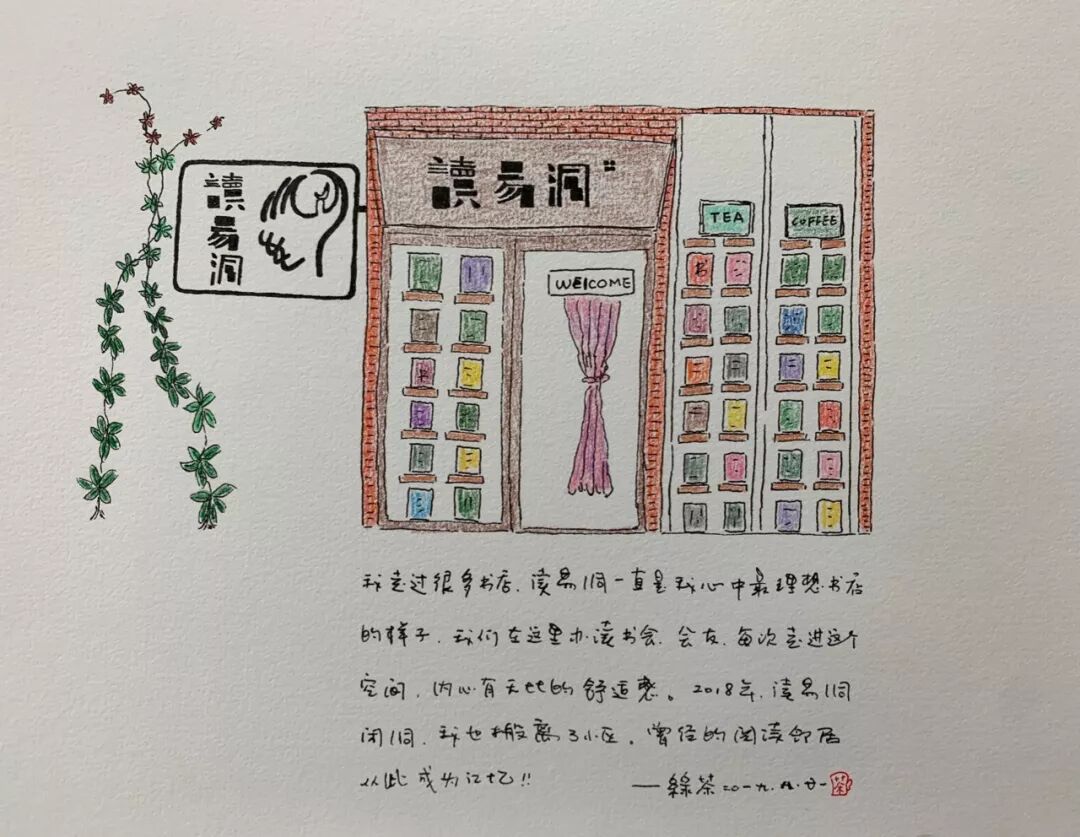 讀易洞
讀易洞"
TEA
COFFEE
WELCOME
书
我走过很多书店、读易洞一直是我心中最理想书店
的样子、我们在这里办读书会、会友、每次走进这个
空间、内心有无比的舒适感。2018年、读易洞
闭洞、我也搬离了小区。曾经的阅读邻居
从此成为记忆!!
——綠茶二〇一九.八.廿一
茶